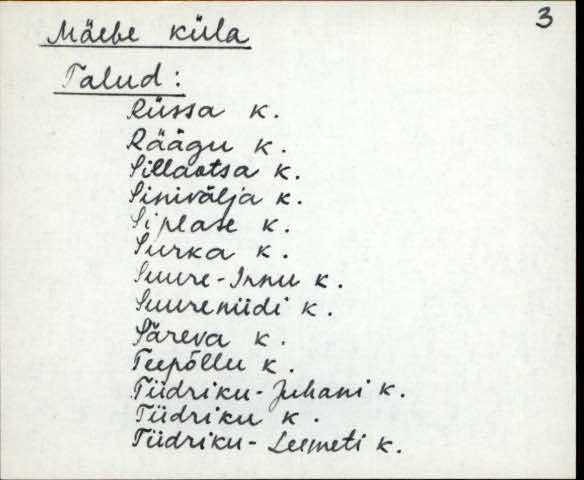 3
Mäebe küla
Talud:
Rüssa k.
Räägu k.
Sillaotsa k.
Sinivälja k.
Siplase k.
Surka k.
Suure-Innu k.
Suureniidi k.
Säreva k.
Teepõllu k.
Tüdriku-Juhani k.
Tüdriku k.
Tüdriku-Leemeti k.